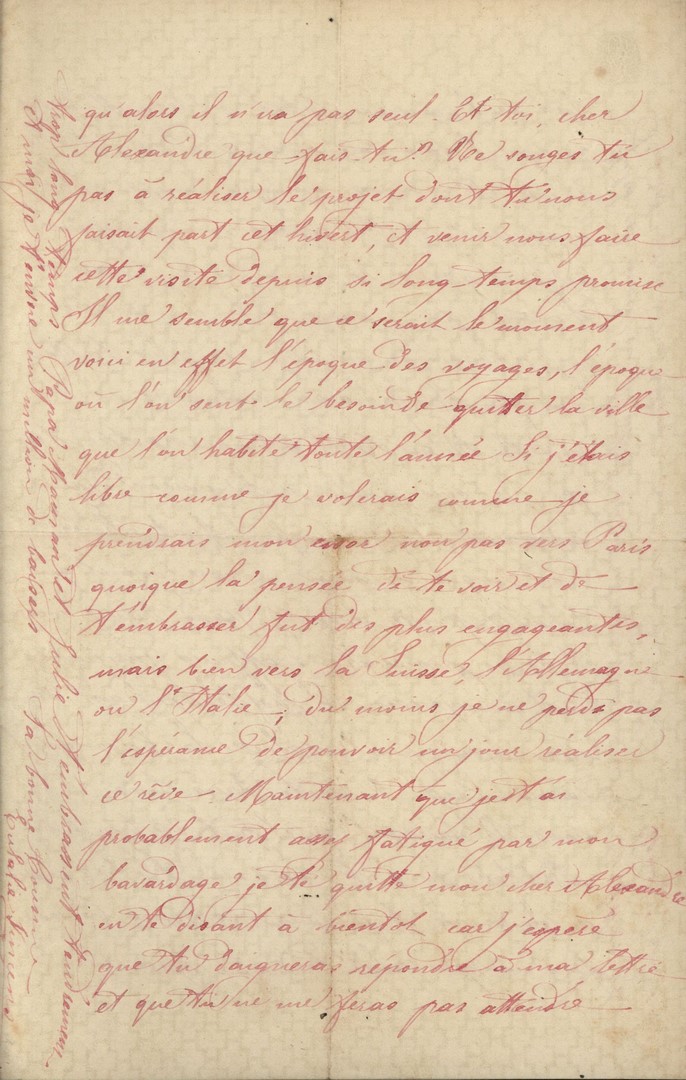 qu'alors il n'ira pas seul. Et toi, cher
Alexandre que fais-tu? Ne songes tu
pas à réaliser le projet dont tu nous
faisait part cet hivert, et venir nous faire
cette visite depuis si long-temps promise
Il me semble que ce serait le moment
voici en effet l'époque des voyages, l'époque
où l'on sent le besoin de quitter la ville
que l'on habite toute l'année Si j'étais
libre comme je volerais comme je
prendrais mon essor non pas vers Paris
quoique la pensée de te voir et de
t'embrasser fut des plus engageantes,
mais bien vers la Suisse, l'Allemagne
ou l'Italie; du moins je ne perds pas
l'espérance de pouvoir un jour réaliser
ce rêve. Maintenant que je t'ai
probablement assez fatigué par mon
bavardage je te quitte mon cher Alexandre
en te disant à bientot car j'espère
que tu daigneras répondre à ma lettre
et que tu ne me feras pas attendre
trop long temps Papa Maman et Julie t'embrassent tendrement
et moi je t'envoie un million de baisers
Ta bonne Cousine
Eulalie